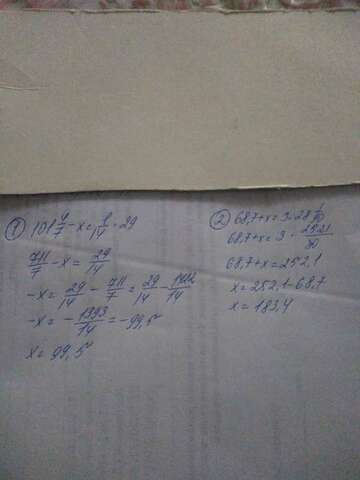 ① 101 4/7 - x = 1/14 · 29
711/7 - x = 29/14
-x = 29/14 - 711/7 = 29/14 - 1422/14
-x = - 1393/14 = -99,5
x = 99,5
② 68,7+x = 3·28 1/90
68,7+x = 3 · 2521/30
68,7+x = 252,1
x = 252,1-68,7
x = 183,4